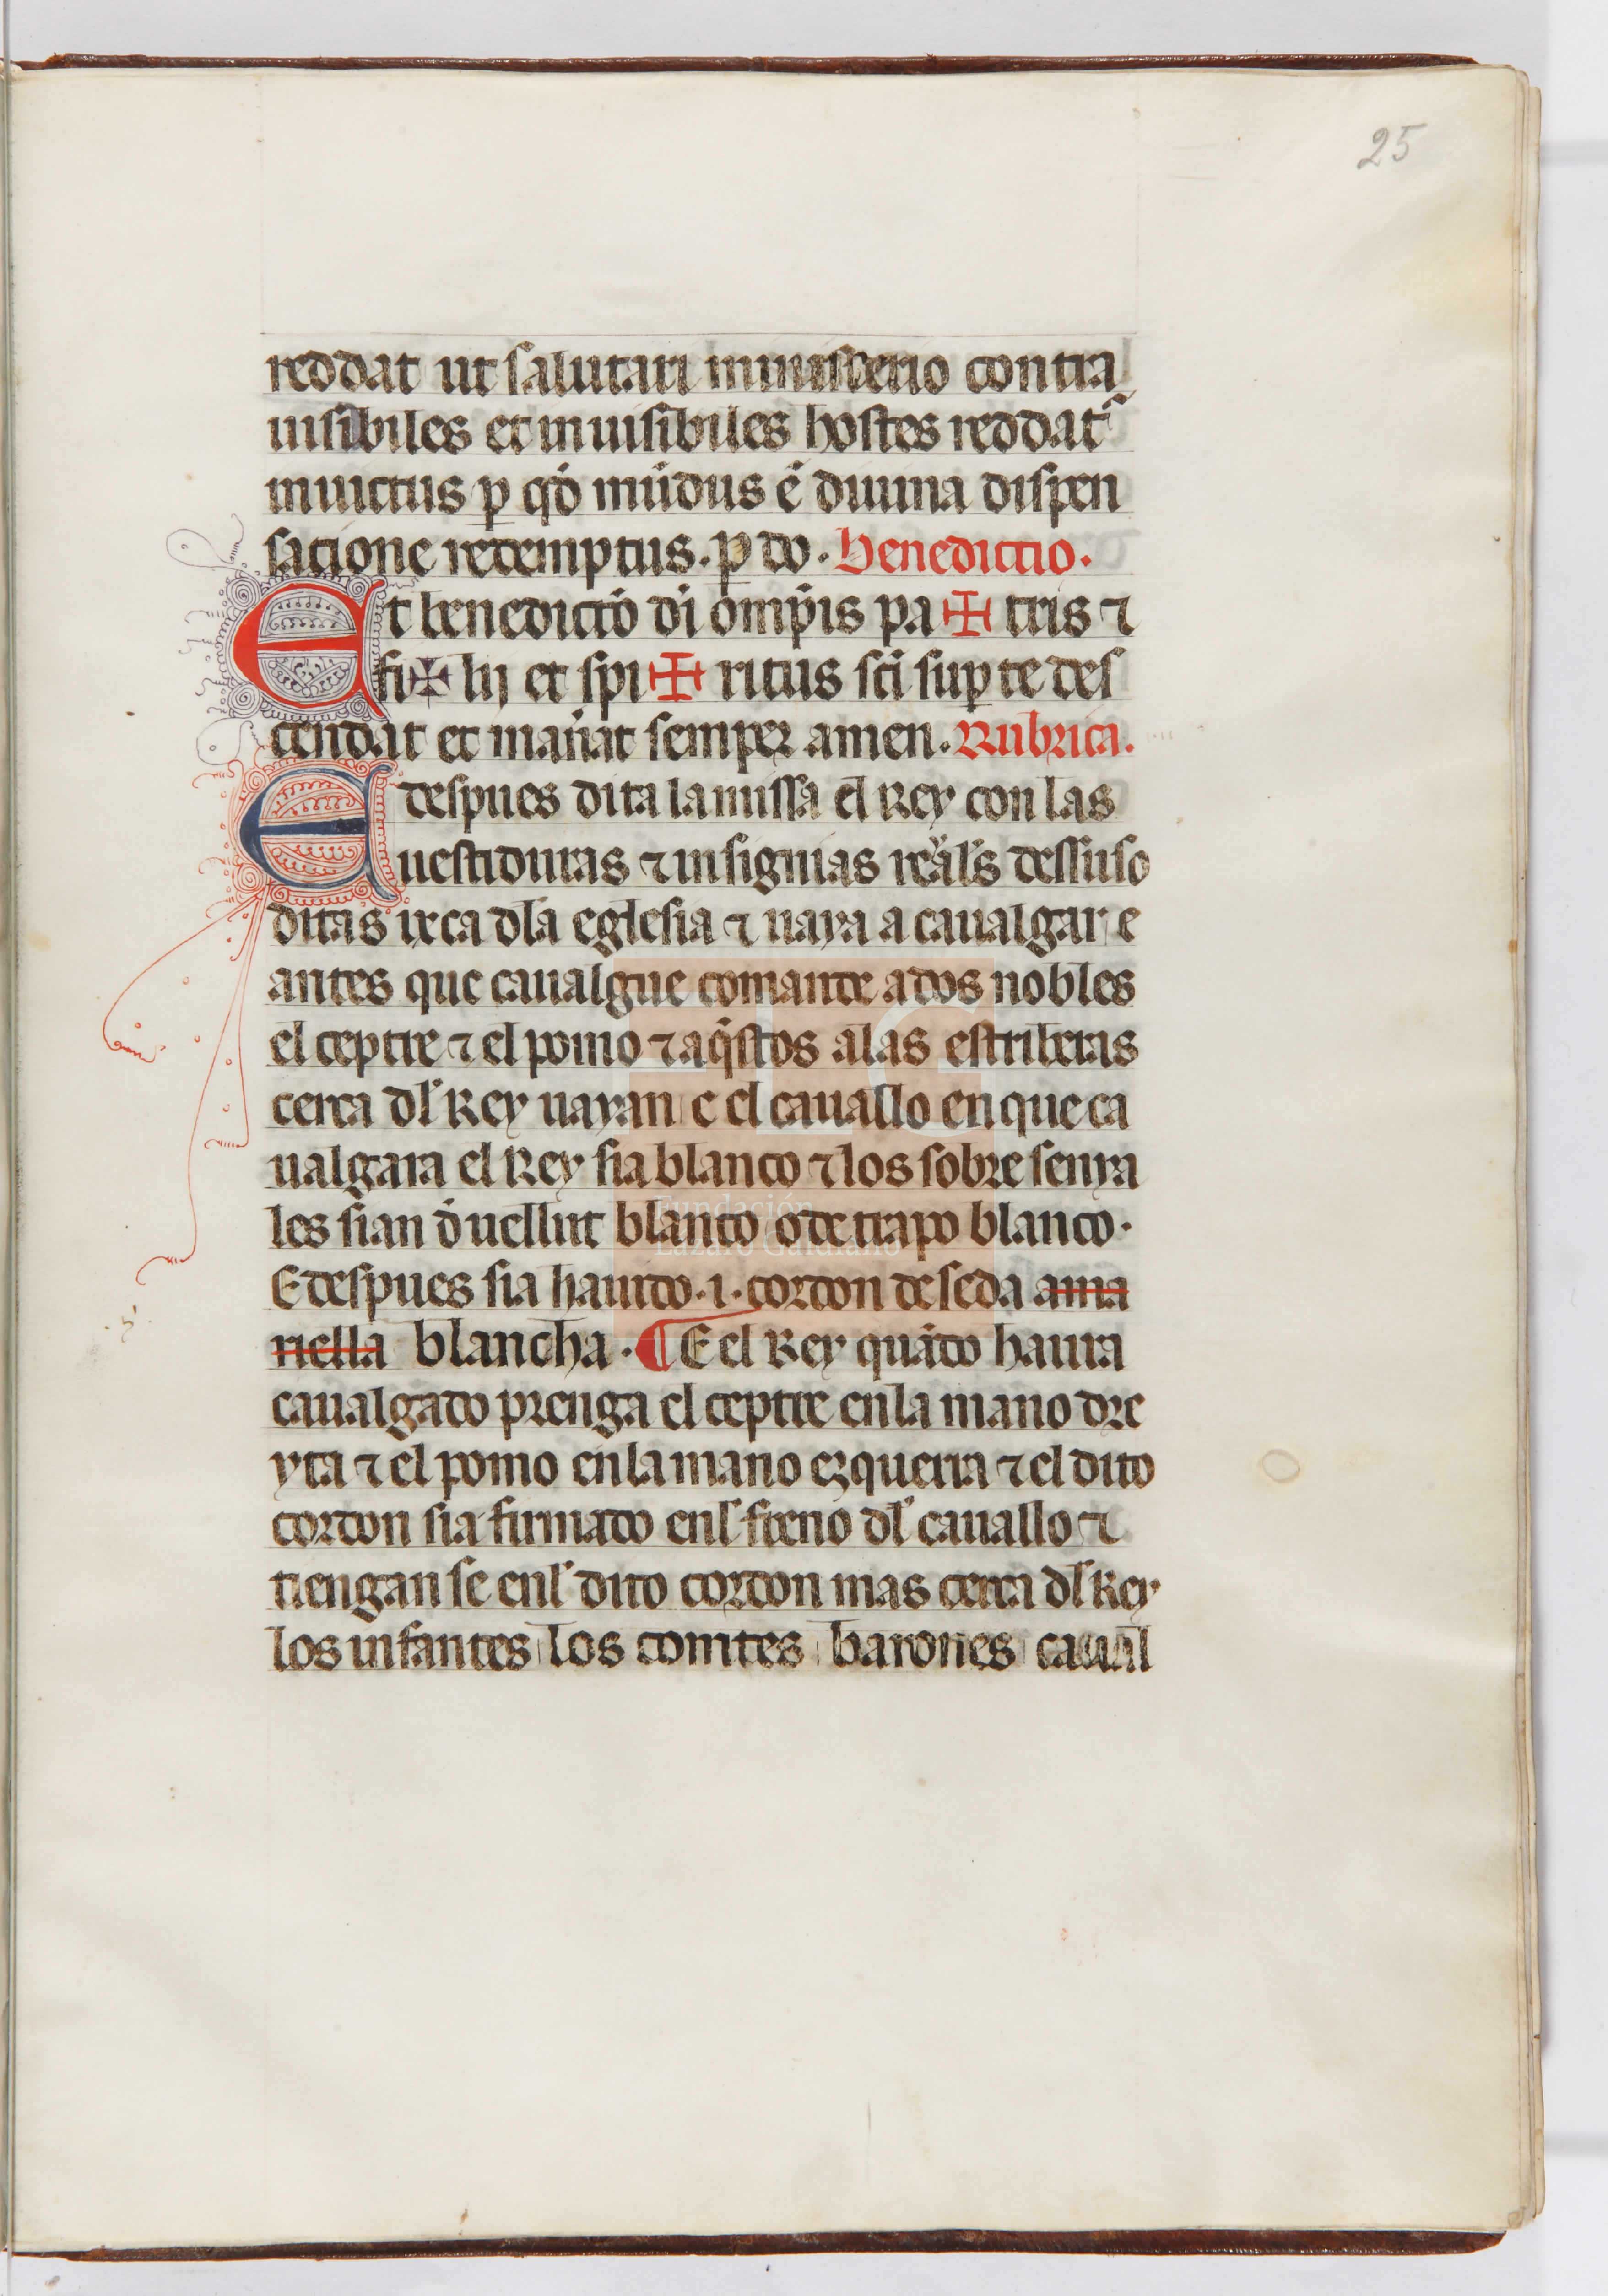 25
reddat ut salutari ministerio contra
uisibiles et inuisibiles hostes reddat᷑
inuictus ꝑ qḋ mūdus ē diuina dispen
satione redemptus. ꝑ do. Benedictio.
Et benedictō di om̄p̄is pa ✠ tris ⁊
fi ✠ lij et spi ✠ ritus sc̄i suꝑ te des
cendat et man̄at semper amen. Rubrica.
E despues dita la missa el Rey con las
uestiduras ⁊ insignias reals̄ dessuso
ditas ixca dla eglesia ⁊ uaya a caualgar e
antes que caualgue comande a dos nobles
el ceptre ⁊ el pomo ⁊ aq̄stos a las estriberas
cerca dl̄ Rey uayan e el cauallo en que ca
ualgara el Rey sia blanco ⁊ los sobre senya
les sian d̄ uellut blanco o de trapo blanco.
E despues sia hauido .i. cordon de seda ama
riella blancha. ¶ E el Rey quādo haura
caualgado prenga el ceptre en la mano dre
yta ⁊ el pomo en la mano ezquerra ⁊ el dito
cordon sia firmado enl̄ freno dl̄ cauallo ⁊
tiengan se enl̄ dito cordon mas cerca dl̄ Rey
los infantes los comtes barones cauall
Fundación
Lázaro Galdiano